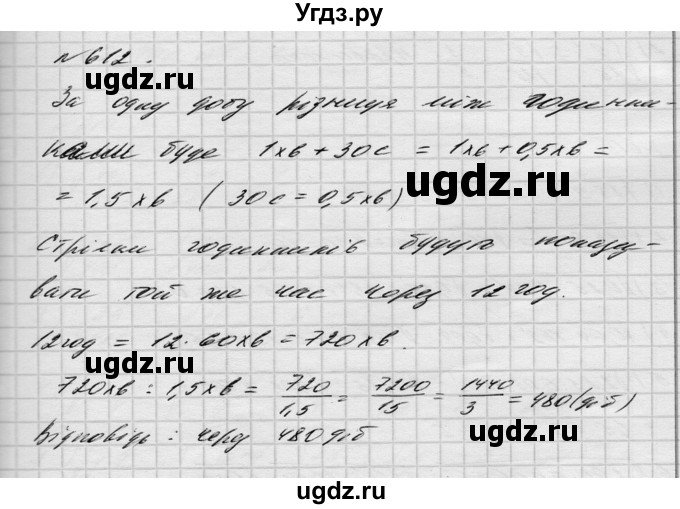 Угдз.ру
№612.
За одну добу різниця між годинни-
ками буде 1хв + 30с = 1хв + 0,5хв =
= 1,5хв (30с = 0,5хв)
Стрілки годинників будуть показу-
вати той же час через 12 год.
12год = 12·60хв = 720хв.
720хв : 1,5хв = 720/1,5 = 7200/15 = 1440/3 = 480(діб)
Відповідь: через 480 діб
ugdz.ru
ugdz.ru
ugdz.ru
ugdz.ru
ugdz.ru
ugdz.ru
ugdz.ru